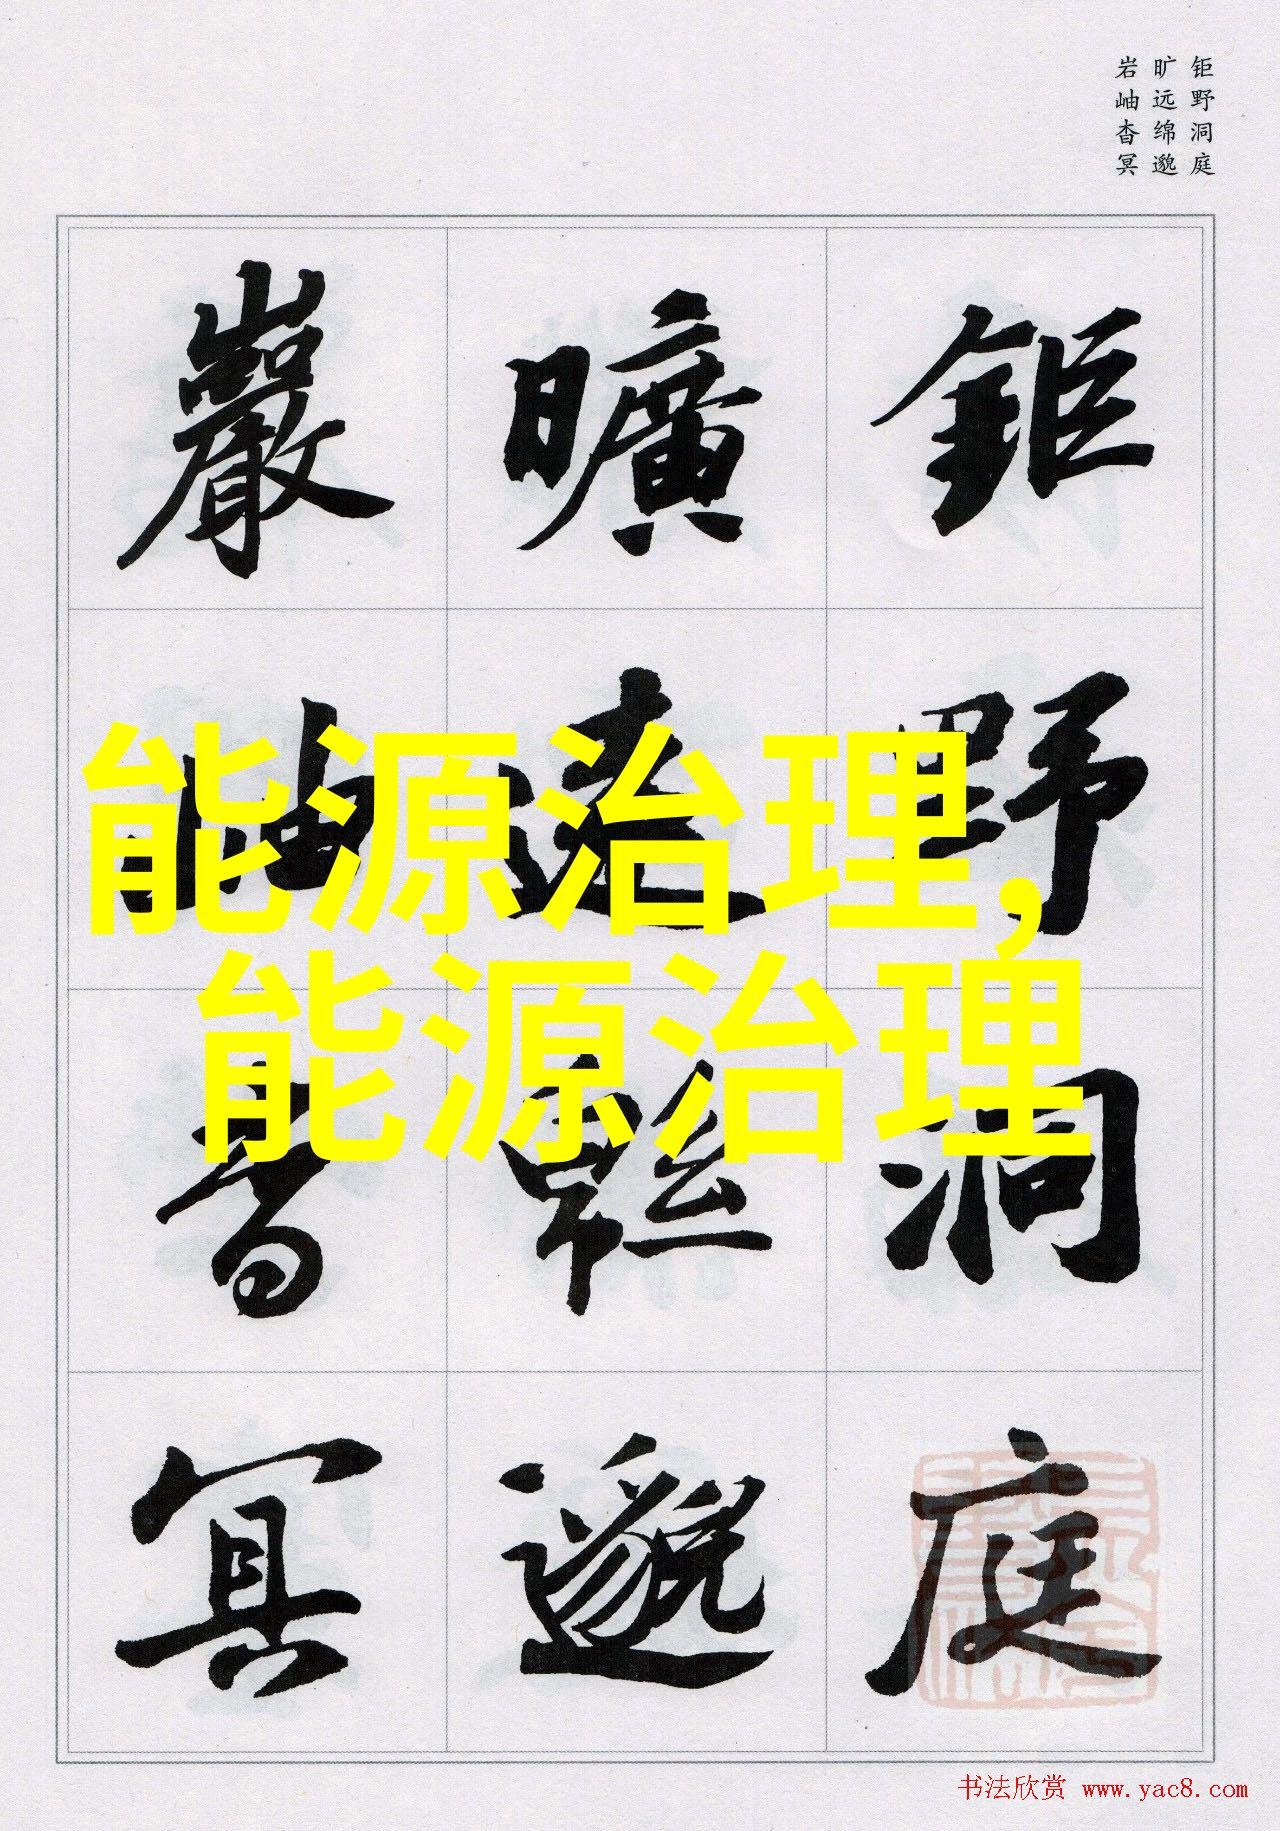 钜野洞庭
旷远绵邈
岩岫杳冥
鉅野洞庭
曠遠緜邈
巖岫杳冥
能源治理,
能源治理
书法欣赏 www.yac8.com